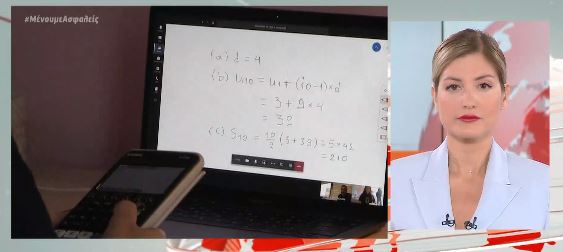 #ΜένουμεΑσφαλείς
(a) d = 4
(b) u10 = u1 + (10-1)×d
= 3 + 9 × 4
= 39
(c) S10 = 10/2 (3 + 39) = 5×42
= 210